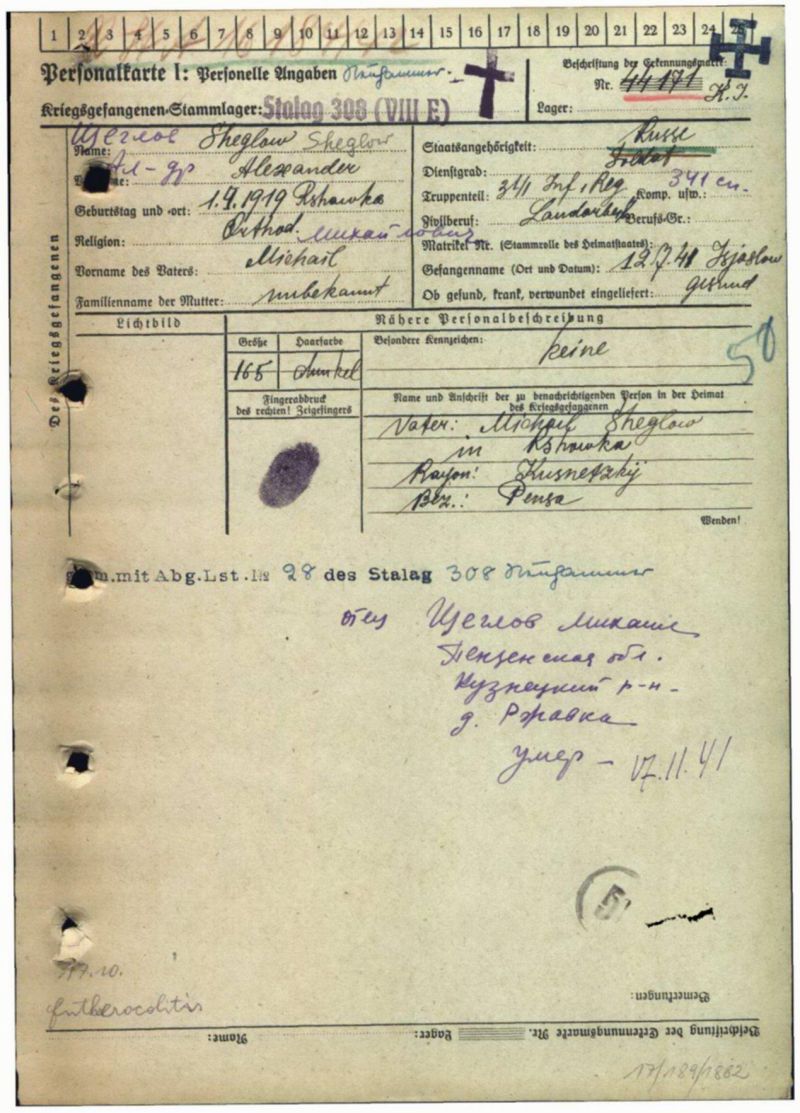 1 2 3 4 5 6 7 8 9 10 11 12 13 14 15 16 17 18 19 20 21 22 23 24 25
Personalkarte I: Personelle Angaben Neuhammer
Beschriftung der Erkennungsmarke
Nr. 44171
Kriegsgefangenen-Stammlager: Stalag 308 (VIII E)
Lager:
Des Kriegsgefangenen
Щеглов
Name: Sheglow Sheglow
Ал-др
Alexander
Geburtstag und -ort: 1.9.1919 Rshowka
Religion: Orthod.
Михайлович
Vorname des Vaters: Michail
Familienname der Mutter: unbekannt
Staatsangehörigkeit: Russe
Dienstgrad: Soldat
Truppenteil: 341 Inf. Reg Komp. usw.: 341 сп.
Zivilberuf: Berufs-Gr.:
Matrikel Nr. (Stammrolle des Heimatstaates):
Gefangennahme (Ort und Datum): 12.7.41 Isjaslow
Ob gesund, krank, verwundet eingeliefert: gesund
Lichtbild
Nähere Personalbeschreibung
Größe Haarfarbe
165 dunkel
Besondere Kennzeichen: keine
Fingerabdruck
des rechten! Zeigefingers
Name und Anschrift der zu benachrichtigenden Person in der Heimat
des Kriegsgefangenen
Vater: Michail Sheglow
in Rshowka
Rayon: Kusnetzkij
Bez.: Pensa
Wenden!
mit Abg.Lst.№ 28 des Stalag 308 Neuhammer
отец Щеглов Михаил
Пензенская обл.
Кузнецкий р-н
д. Ржавка
умер - 17.11.41
51
Bemerkungen:
Beschriftung der Erkennungsmarke Nr. Lager: Name: